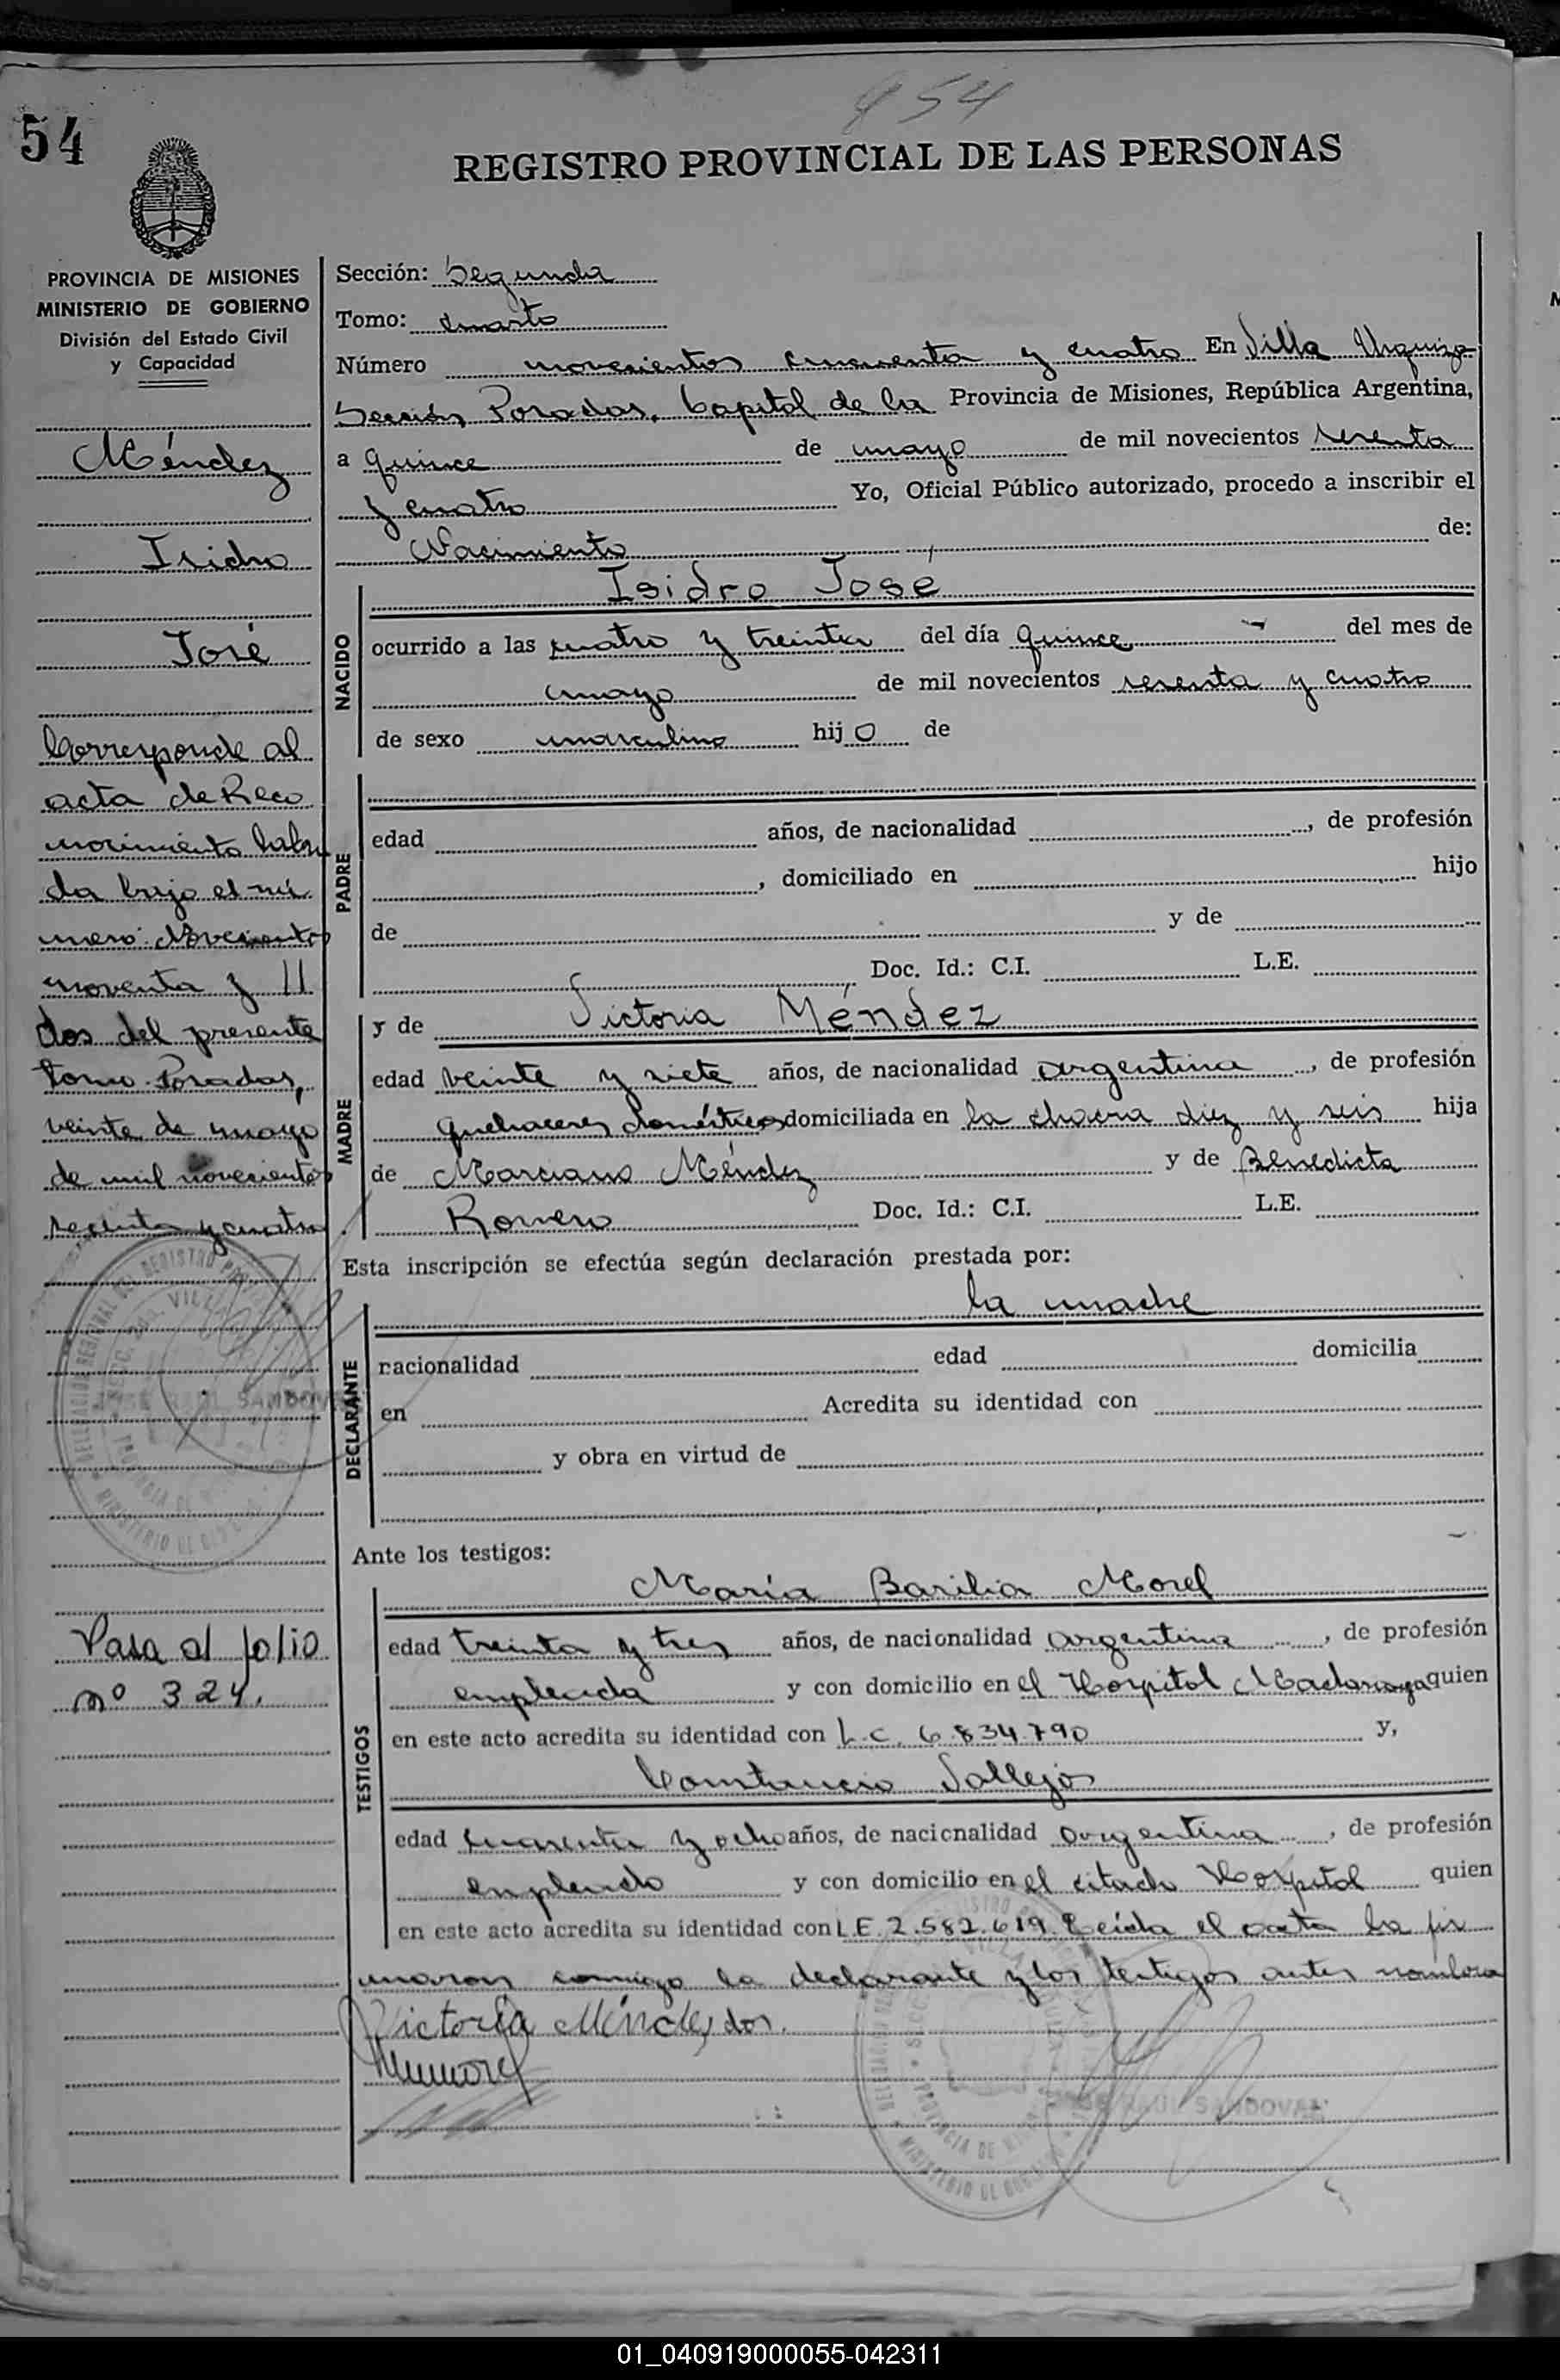 954
54
REGISTRO PROVINCIAL DE LAS PERSONAS
PROVINCIA DE MISIONES
MINISTERIO DE GOBIERNO
División del Estado Civil
y Capacidad
Méndez
Isidro
José
Corresponde al
acta de Reco
nocimiento labra
da bajo el nú
mero Novecientos
noventa y //
dos del presente
tomo. Posadas,
veinte de mayo
de mil novecientos
sesenta y cuatro.
Pasa al folio
nº 324.
Sección: Segunda
Tomo: cuarto
Número novecientos cincuenta y cuatro En Villa Urquiza
Sección Posadas, Capital de la Provincia de Misiones, República Argentina,
a quince de mayo de mil novecientos sesenta
y cuatro Yo, Oficial Público autorizado, procedo a inscribir el
Nacimiento de:
NACIDO
Isidro José
ocurrido a las cuatro y treinta del día quince del mes de
mayo de mil novecientos sesenta y cuatro
de sexo masculino hijo de
PADRE
edad años, de nacionalidad , de profesión
, domiciliado en hijo
de y de
Doc. Id.: C.I. L.E.
MADRE
y de Victoria Méndez
edad veinte y siete años, de nacionalidad argentina , de profesión
quehaceres domésticos domiciliada en la chacra diez y seis hija
de Marciano Méndez y de Benedicta
Romero Doc. Id.: C.I. L.E.
Esta inscripción se efectúa según declaración prestada por:
DECLARANTE
la madre
nacionalidad edad domicilia
en Acredita su identidad con
y obra en virtud de
Ante los testigos:
TESTIGOS
María Basilia Morel
edad treinta y tres años, de nacionalidad argentina , de profesión
empleada y con domicilio en el Hospital Madariaga quien
en este acto acredita su identidad con L.C. 6.834.790 y,
Constancio Vallejos
edad cuarenta y ocho años, de nacionalidad argentina , de profesión
empleado y con domicilio en el citado Hospital quien
en este acto acredita su identidad con L.E. 2.582.619. Leída el acta la fir
maron conmigo la declarante y los testigos antes nombra
Victoria Méndez dos.
RAUL SANDOVAL
01_040919000055-042311